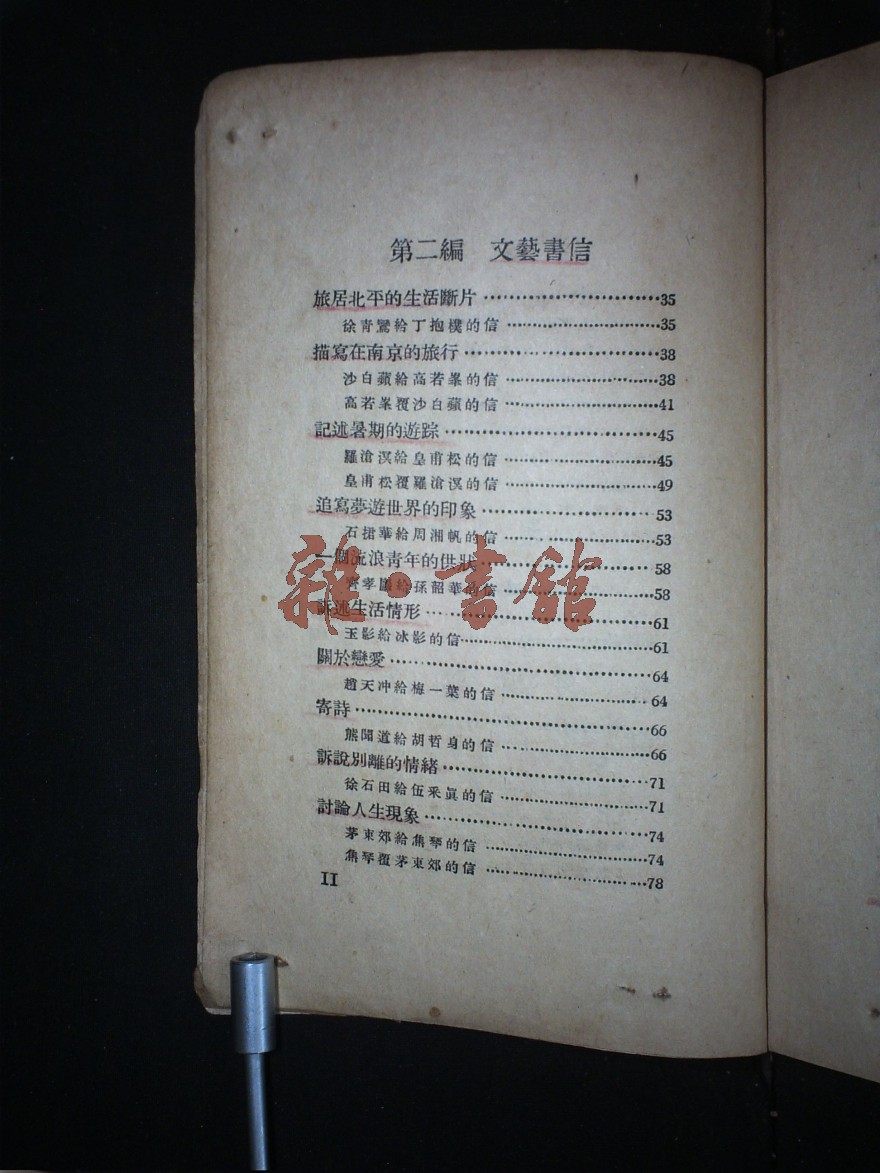 第二編 文藝書信
旅居北平的生活斷片 35
徐青鸞給丁抱樸的信 35
描寫在南京的旅行 38
沙白蘋給高若峯的信 38
高若峯覆沙白蘋的信 41
記述暑期的遊踪 45
羅滄溟給皇甫松的信 45
皇甫松覆羅滄溟的信 49
追寫夢遊世界的印象 53
石珺華給周湘帆的信 53
一個流浪青年的供狀 58
給孫韶華的信 58
訴述生活情形 61
玉影給冰影的信 61
關於戀愛 64
趙天冲給梅一葉的信 64
寄詩 66
熊聞道給胡哲身的信 66
訴說別離的情緒 71
徐石田給伍釆眞的信 71
討論人生現象 74
茅東郊給焦琴的信 74
焦琴覆茅東郊的信 78
II
雜·書館